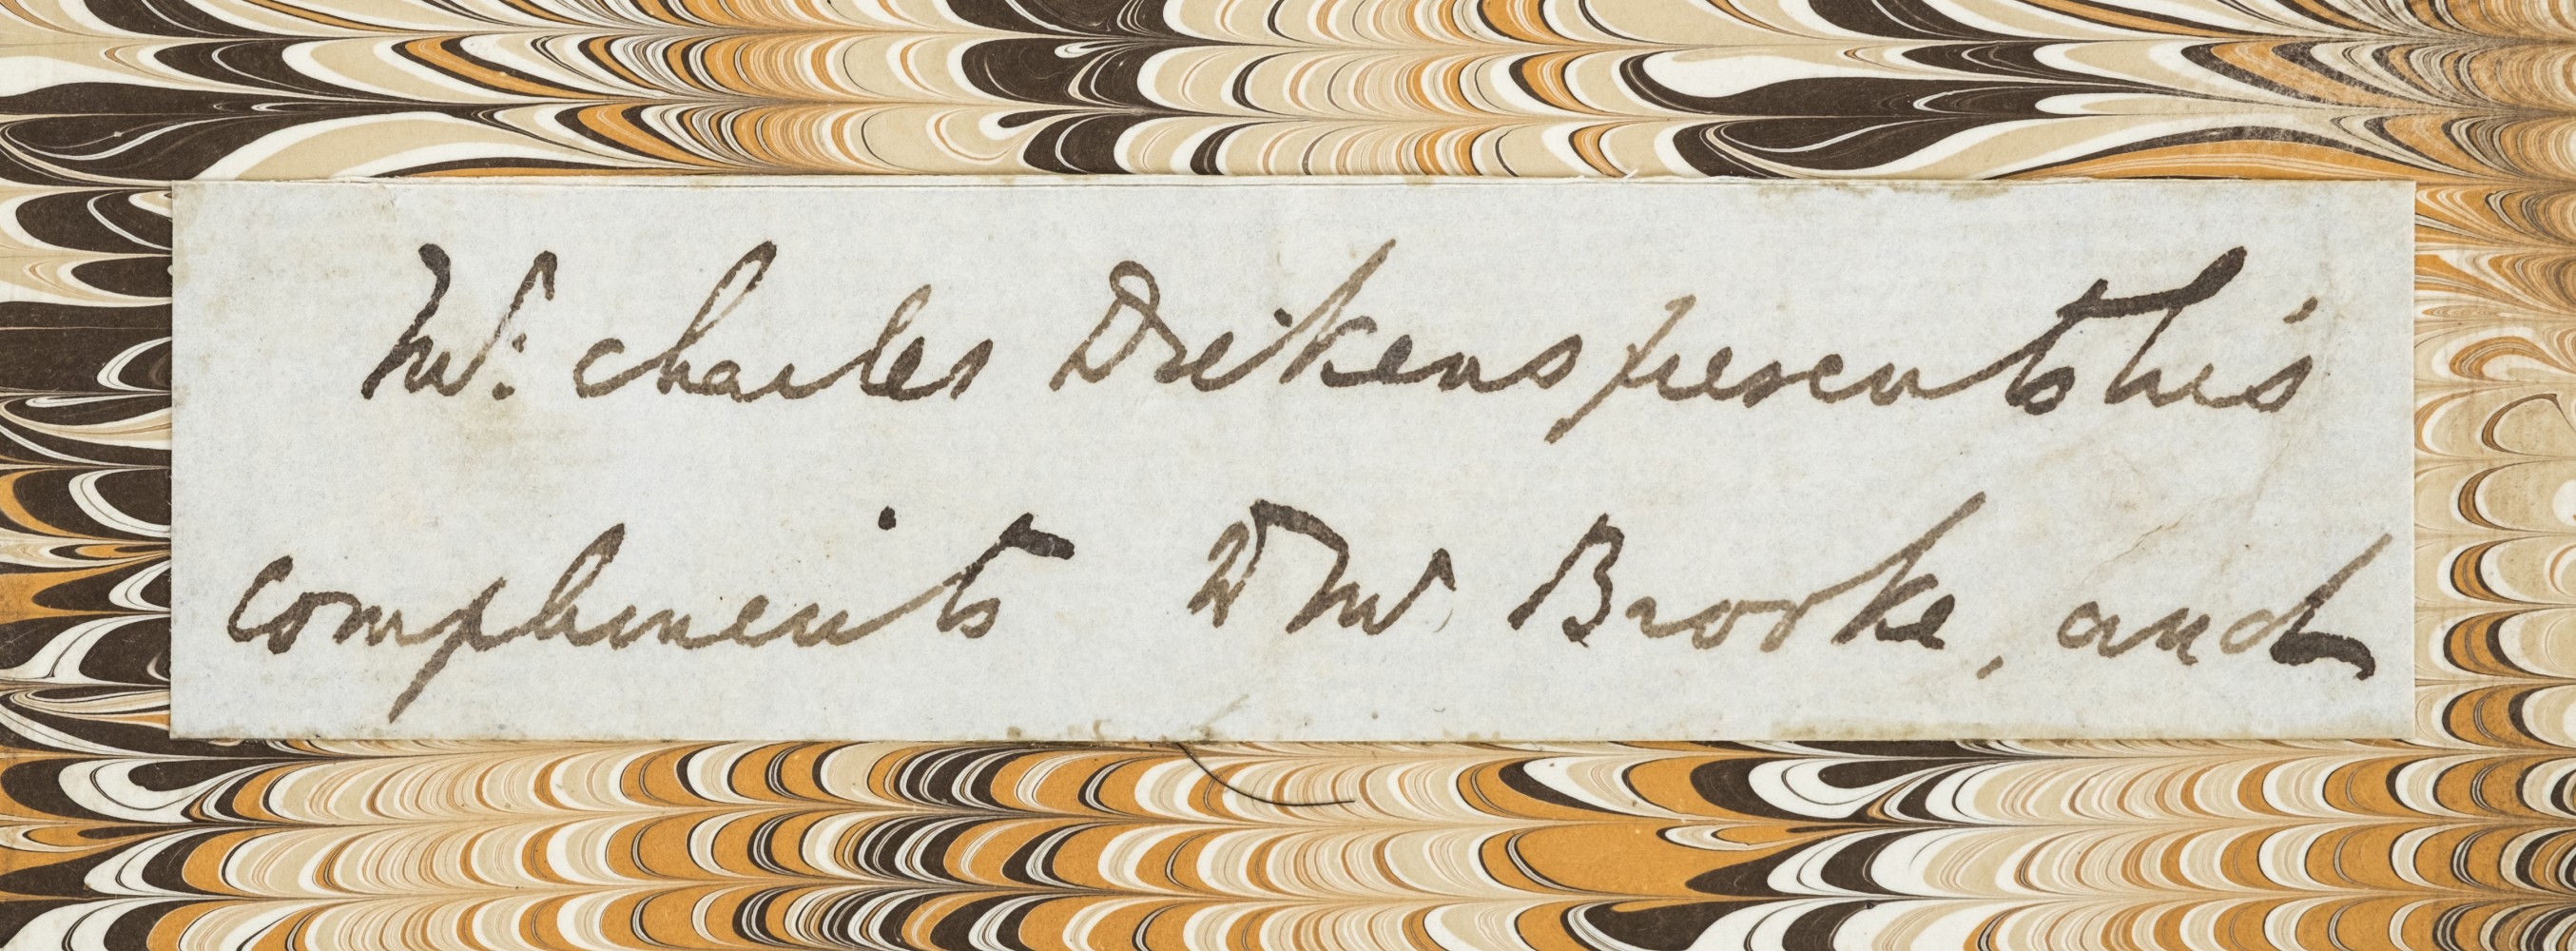 Mr. Charles Dickens presents his
compliments to Mr. Brooke, and